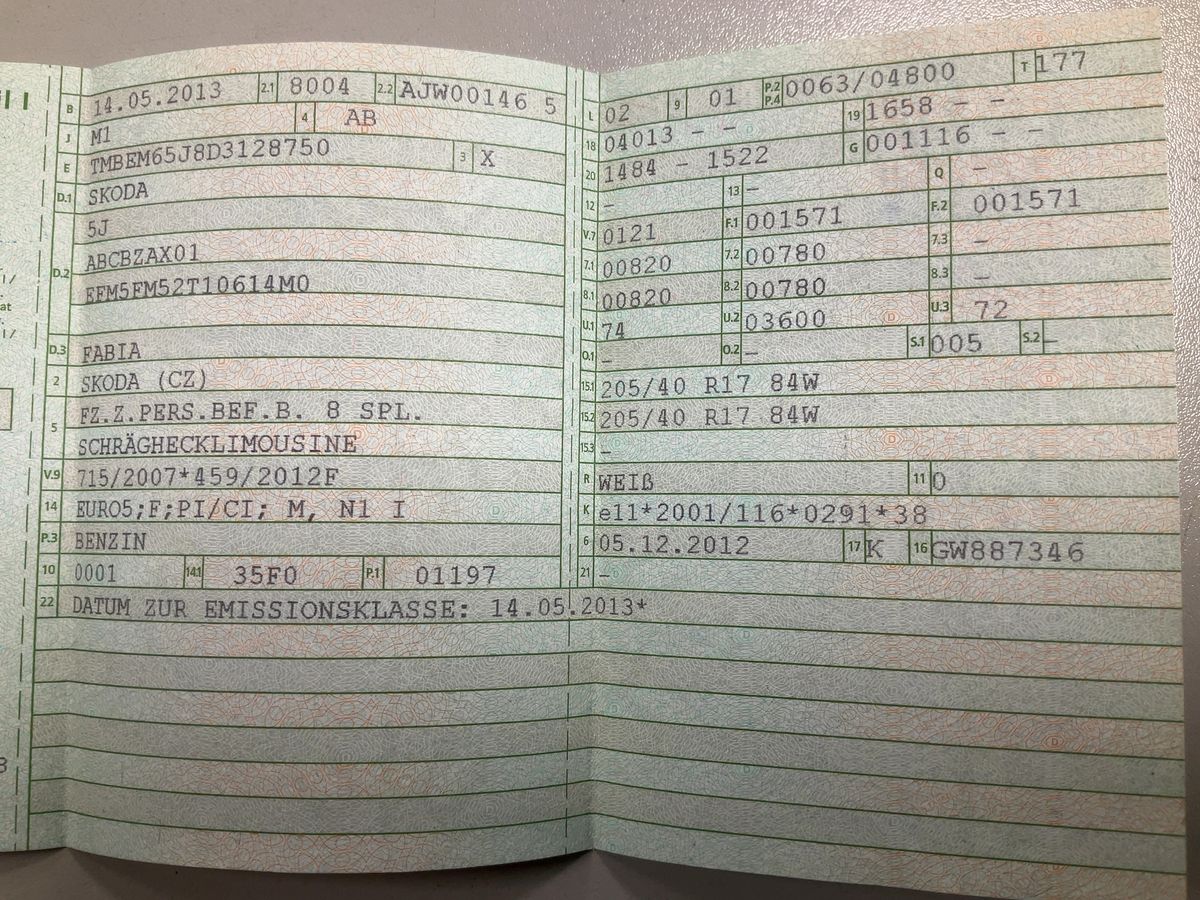 B 14.05.2013 2.1 8004 2.2 AJW00146 5
J M1 4 AB
E TMBEM65J8D3128750 3 X
D.1 SKODA
5J
D.2 ABCBZAX01
EFM5FM52T10614M0
D.3 FABIA
2 SKODA (CZ)
5 FZ.Z.PERS.BEF.B. 8 SPL.
SCHRÄGHECKLIMOUSINE
V.9 715/2007*459/2012F
14 EURO5;F;PI/CI; M, N1 I
P.3 BENZIN
10 0001 14.1 35F0 P.1 01197
22 DATUM ZUR EMISSIONSKLASSE: 14.05.2013*
L 02 9 01 P.2 P.4 0063/04800 T 177
18 04013 - - 19 1658 - -
20 1484 - 1522 G 001116 - -
12 - 13 - Q -
V.7 0121 F.1 001571 F.2 001571
7.1 00820 7.2 00780 7.3 -
8.1 00820 8.2 00780 8.3 -
U.1 74 U.2 03600 U.3 72
O.1 - O.2 - S.1 005 S.2 -
15.1 205/40 R17 84W
15.2 205/40 R17 84W
15.3 -
R WEIß 11 0
K e11*2001/116*0291*38
6 05.12.2012 17 K 16 GW887346
21 -